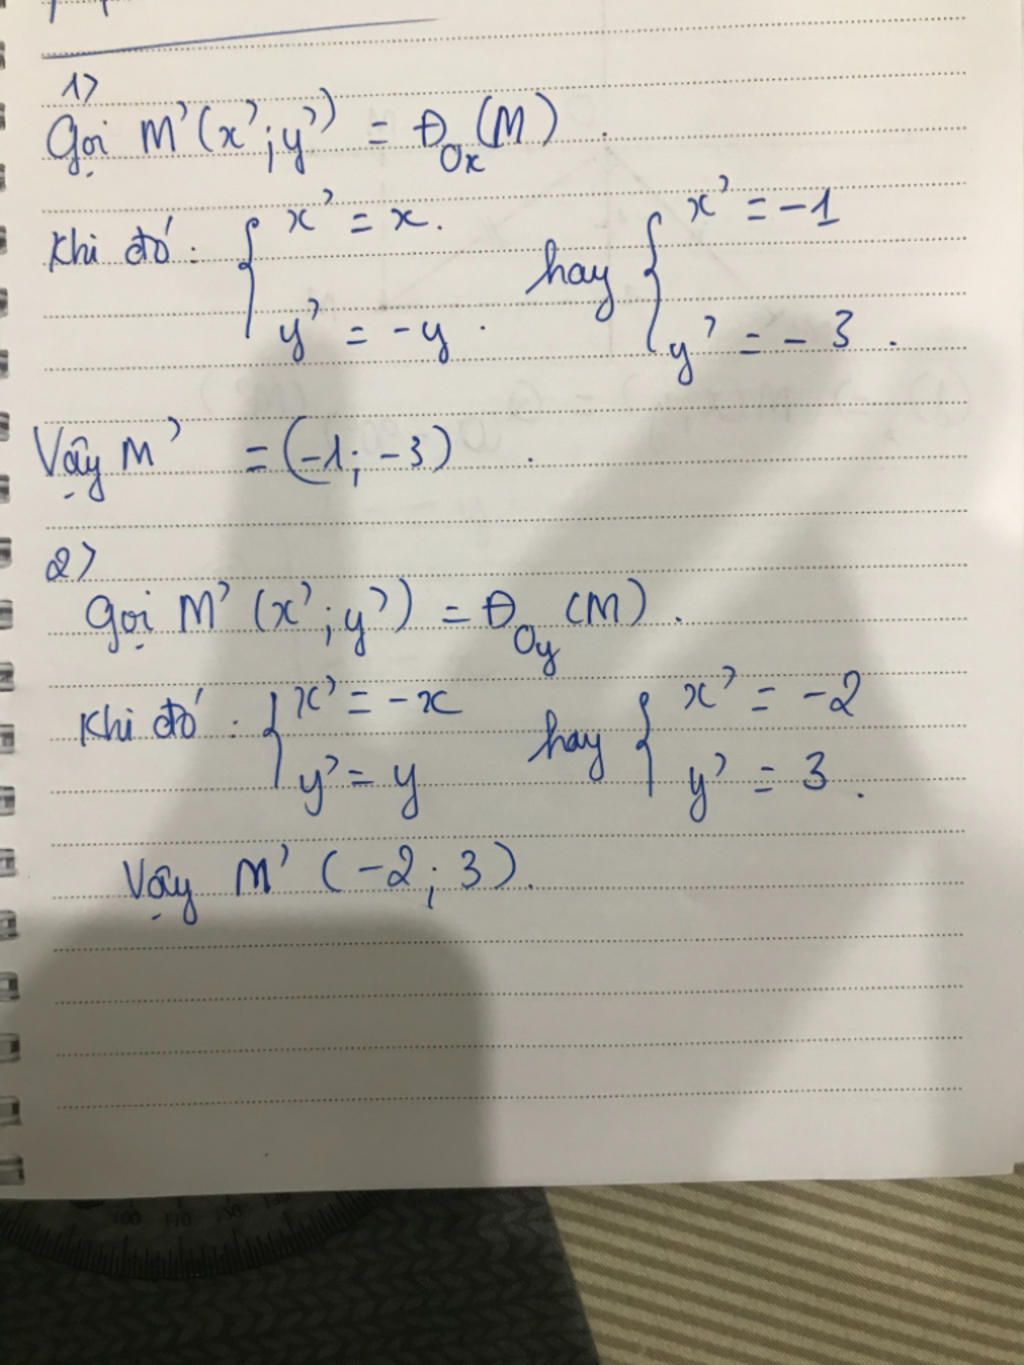 1)
Gọi M'(x';y') = Đ_Ox (M).
Khi đó: { x' = x. y' = -y. hay { x' = -1 y' = -3.
Vậy M' = (-1; -3).
2)
Gọi M' (x';y') = Đ_Oy (M).
Khi đó: { x' = -x y' = y hay { x' = -2 y' = 3.
Vậy M' (-2; 3).